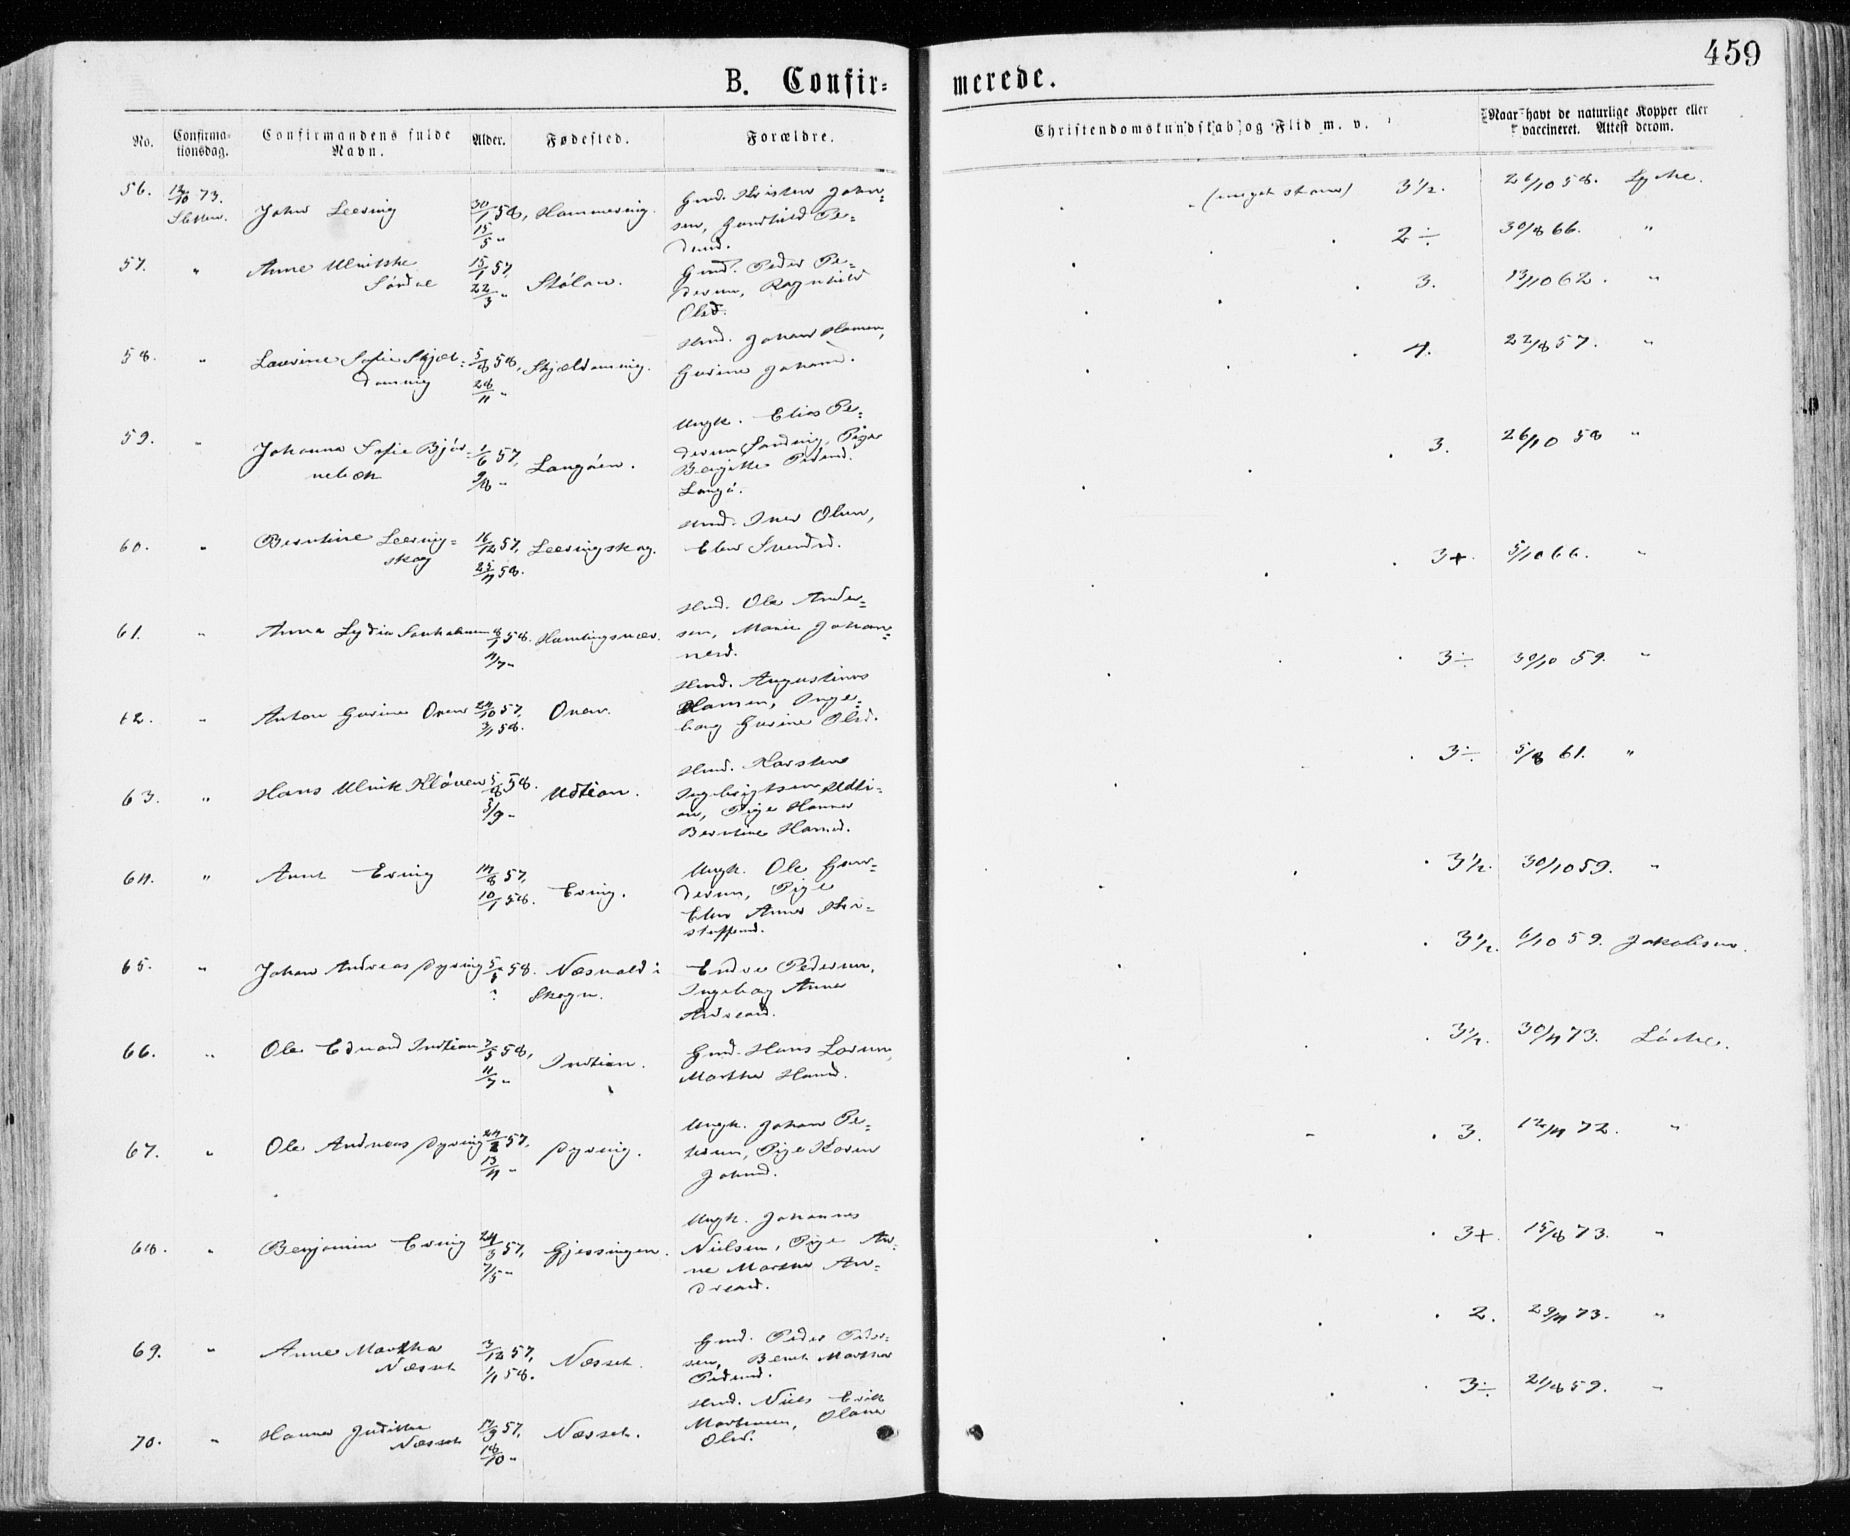 459
B. Confir=
merede.
No.
Confirma-
tionsdag.
Confirmandens fulde
Navn.
Alder.
Fødested.
Forældre.
Christendomskundskab og Flid m. v.
Naar havt de naturlige Kopper eller
vaccineret. Attest derom.
56. 12/10 73.
John Leering 30/1 58, 15/5 " Hammering.
Gmd. Kristen John=
sen, Gundhild Pe=
dersd.
(meget skran) 3½. 26/10 58. Lyche.
57. " Anne Ulrikke
Sørdal
15/1 57, 22/3 " Stølan.
Gmd. Peder Pe=
dersen, Ragnhild
Olsd.
2÷ 30/8 66. "
3. 13/10 62. "
58. " Laurine Sofie Skjel=
domnig
5/8 58, 28/11 " Skjeldomnig.
Hmd. Johan Hansen,
Gurine Johansd.
4. 22/8 57. "
59. " Johanna Sofie Bjør=
nebæk
1/6 57, 9/8 " Langøen.
Ungk. Elias Pe=
dersen Sandnig, Pige
Bergitte Pedersd.
Langø.
3. 26/10 58 "
60. " Berntine Leering=
skog
16/12 57, 25/4 58. Leeringskog.
Hmd. Iver Olsen,
Elen Svendsd.
3+. 5/10 66. "
61. " Anna Lydia 8/1 58. 4/7 "
Hmd. Ole Ander=
sen, Marie Johan=
nesd.
3÷ 30/10 59. "
62. " Anton Gurines Oren 24/10 57, 3/1 58. Oren.
Hmd. Augustinus
Hansen, Inge=
borg Gurine Olsd.
3÷ 5/8 61. "
63. " Hans Ulrik Kløven 5/8 58. 5/9 " Udtian.
Hmd. Karsten
Ingebrigtsen Udti=
an, Pige Hanna
Berntine Hansd.
64. " Anne Ering 14/8 57, 10/1 58. Ering.
Ungk. Ole Gun=
dersen, Pige
Elen Anna Kri=
stoffersd.
3½. 30/10 59. "
65. " Johan Andreas Dyring 5/5 58. ? Næsvald i
Skogn.
Endre Pedersen,
Ingeborg Anna
Andreasd.
3½. 6/10 59. Jakobsen.
66. " Ole Edvard Indtian 7/5 58, 11/7 " Indtian.
Gmd. Hans Larsen,
Martha Hansd.
3½. 30/4 73. Løche.
67. " Ole Andreas Dyring 24/2 57, 13/4 " Dyring.
Ungk. Johan Pe=
tersen, Pige Karen
Johnsd.
3. 12/4 72. "
68. " Benjamin Ering 24/3 57, 7/5 " Gjessingen.
Ungk. Johannes
Nielsen, Pige An=
ne Martha An=
dreasd.
3+. 15/8 73. "
69. " Anne Martha
Næsset
3/12 57, 1/1 58. Næsset.
Gmd. Peder Peder=
sen, Beret Martha
Pedersd.
2. 29/4 73. "
70. " Hanna Juditte
Næsset
17/9 57, 18/10 " Næsset.
Hmd. Niels Erik
Mortensen, Olava
Olsd.
3÷ 21/8 59. "